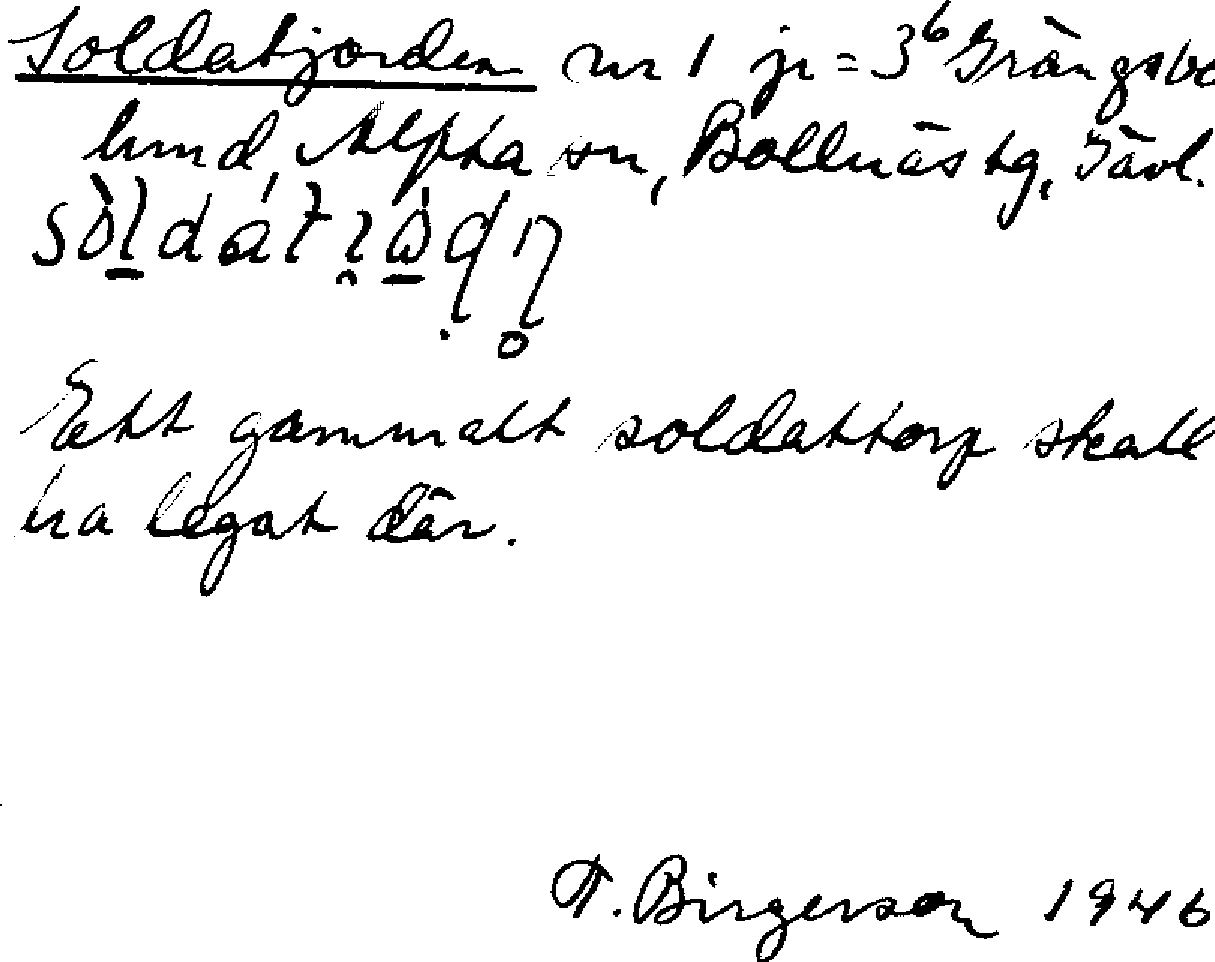 Soldatjorden nr 1 jr = 3⁶ Grängsbo
lund, Alfta sn, Bollnäs tg, Gävl.
Ett gammalt soldattorp skall
ha legat där.
T. Birgerson 1946